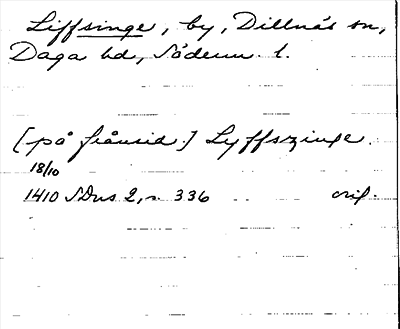 Liffsinge, by, Dillnäs sn,
Daga hd, Söderm. l.
[på frånsid.] Lyffszinge.
18/10
1410 SDns 2, s. 336 orig.